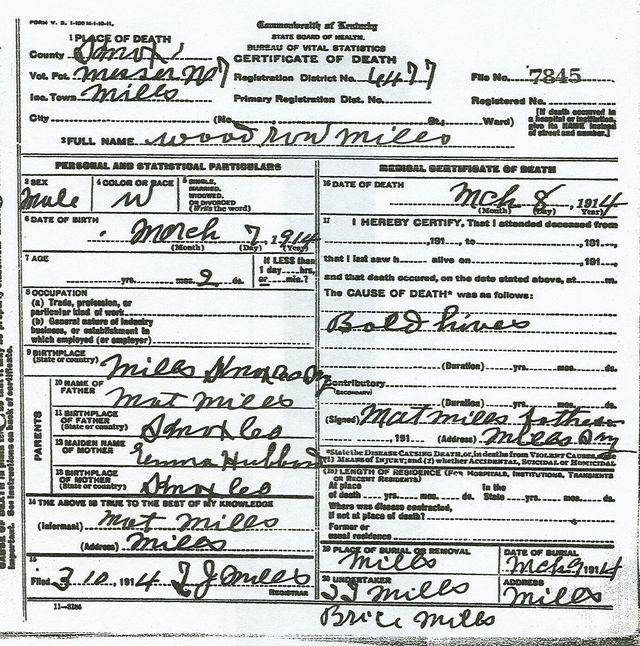 FORM V. S. 1-100 M-1-10-11.
Commonwealth of Kentucky
STATE BOARD OF HEALTH.
BUREAU OF VITAL STATISTICS
CERTIFICATE OF DEATH
1 PLACE OF DEATH
County Knox
Vot. Pct. Messer No 7 Registration District No. 4477 File No. 7845
Inc. Town Mills Primary Registration Dist. No. Registered No.
City (No. St.; Ward)
[If death occurred in a hospital or institution, give its NAME instead of street and number.]
2 FULL NAME Woodrow Mills
PERSONAL AND STATISTICAL PARTICULARS
3 SEX Male
4 COLOR OR RACE W
5 SINGLE, MARRIED, WIDOWED, OR DIVORCED (Write the word)
6 DATE OF BIRTH March 7, 1914
(Month) (Day) (Year)
7 AGE yrs. mos. 2 ds.
If LESS than 1 day hrs. or min.?
8 OCCUPATION
(a) Trade, profession, or particular kind of work
(b) General nature of industry business, or establishment in which employed (or employer)
9 BIRTHPLACE (State or country) Mills Knox Co Ky
PARENTS
10 NAME OF FATHER Mat Mills
11 BIRTHPLACE OF FATHER (State or country) Knox Co
12 MAIDEN NAME OF MOTHER Emma Hubbard
13 BIRTHPLACE OF MOTHER (State or country) Knox Co
14 THE ABOVE IS TRUE TO THE BEST OF MY KNOWLEDGE
(Informant) Mat Mills
(Address) Mills
15
Filed 3 10, 1914 T J Mills
REGISTRAR
11—3184
MEDICAL CERTIFICATE OF DEATH
16 DATE OF DEATH Mch 8, 1914
(Month) (Day) (Year)
17 I HEREBY CERTIFY, That I attended deceased from
, 191 , to , 191 ,
that I last saw h alive on , 191 ,
and that death occured, on the date stated above, at m.
The CAUSE OF DEATH* was as follows:
Bold hives
(Duration) yrs. mos. ds.
Contributory (SECONDARY)
(Duration) yrs. mos. ds.
(Signed) Mat Mills father
191 (Address) Mills Ky
*State the DISEASE CAUSING DEATH, or, in deaths from VIOLENT CAUSES, state (1) MEANS OF INJURY; and (2) whether ACCIDENTAL, SUICIDAL or HOMICIDAL
(18) LENGTH OF RESIDENCE (FOR HOSPITALS, INSTITUTIONS, TRANSIENTS OR RECENT RESIDENTS)
At place of death yrs. mos. ds. In the State yrs. mos. ds.
Where was disease contracted, if not at place of death?
Former or usual residence
19 PLACE OF BURIAL OR REMOVAL Mills
DATE OF BURIAL Mch 9 1914
20 UNDERTAKER T J Mills
ADDRESS Mills
Brice Mills
important. See instructions on back of certificate.